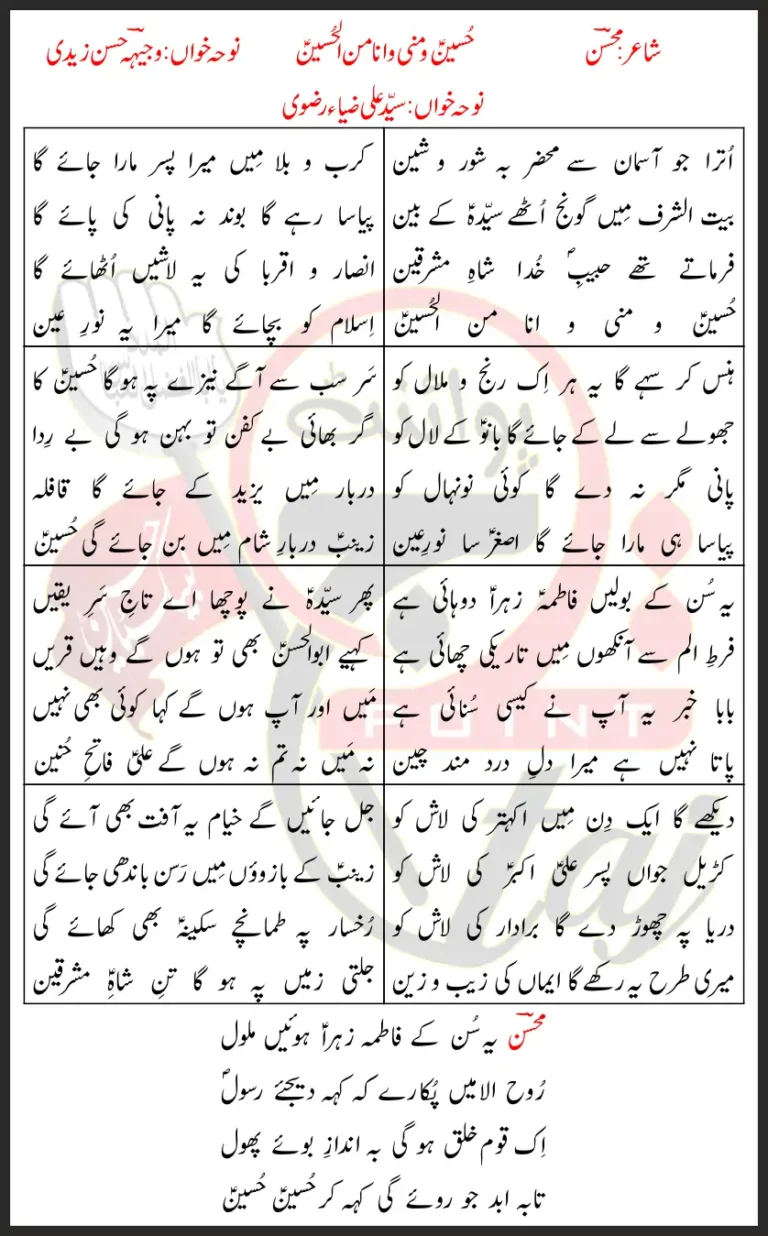 شاعر: محسنؔ حُسینؑ و منی و انا من الحُسینؑ نوحہ خواں: وجیہہ حسن زیدی
نوحہ خواں: سیّد علی ضیاء رضوی
اُترا جو آسمان سے محضر بہ شور و شین
بیت الشرف مِیں گونج اُٹھے سیّدہؑ کے بین
فرماتے تھے حبیبِؐ خُدا شاہِ مشرقین
حُسینؑ و منی و انا من الحُسینؑ
کرب و بلا مِیں میرا پسر مارا جائے گا
پیاسا رہے گا بوند نہ پانی کی پائے گا
انصار و اقربا کی یہ لاشیں اُٹھائے گا
اِسلام کو بچائے گا میرا یہ نورِ عین
ہنس کر سہے گا یہ ہر اِک رنج و ملال کو
جھولے سے لے کے جائے گا بانوؑ کے لال کو
پانی مگر نہ دے گا کوئی نونہال کو
پیاسا ہی مارا جائے گا اصغرؑ سا نورِعین
سَر سب سے آگے نیزے پہ ہو گا حُسینؑ کا
گر بھائی بے کفن تو بہن ہو گی بے رِدا
دربار مِیں یزید کے جائے گا قافلہ
زینبؑ دربارِ شام مِیں بن جائے گی حُسینؑ
یہ سُن کے بولیں فاطمہؑ زہراؑ دوہائی ہے
فرطِ الم سے آنکھوں مِیں تاریکی چھائی ہے
بابا خبر یہ آپ نے کیسی سُنائی ہے
پاتا نہیں ہے میرا دلِ درد مند چین
پھر سیّدہؑ نے پوچھا اے تاجِ سَرِ یقیں
کہیے ابوالحسنؑ بھی تو ہوں گے وہیں قریں
مَیں اور آپ ہوں گے کہا کوئی بھی نہیں
نہ مَیں نہ تم نہ ہوں گے علیؑ فاتحِ حُنین
دیکھے گا ایک دِن مِیں اکہتر کی لاش کو
کڑیل جواں پسر علیؑ اکبرؑ کی لاش کو
دریا پہ چھوڑ دے گا برادار کی لاش کو
میری طرح یہ رکھے گا ایماں کی زیب و زین
جل جائیں گے خیام یہ آفت بھی آئے گی
زینبؑ کے بازوؤں مِیں رَسن باندھی جائے گی
رُخسار پہ طمانچے سکینہؑ بھی کھائے گی
جلتی زمیں پہ ہو گا تنِ شاہِؑ مشرقین
محسنؔ یہ سُن کے فاطمہ زہراؑ ہوئیں ملول
رُوح الامیں پُکارے کہ کہہ دیجئے رسولؐ
اِک قوم خلق ہو گی بہ اندازِ بوئے پھول
تابہ ابد جو روئے گی کہہ کر حُسینؑ حُسینؑ
پوائنٹ
POINT
taj